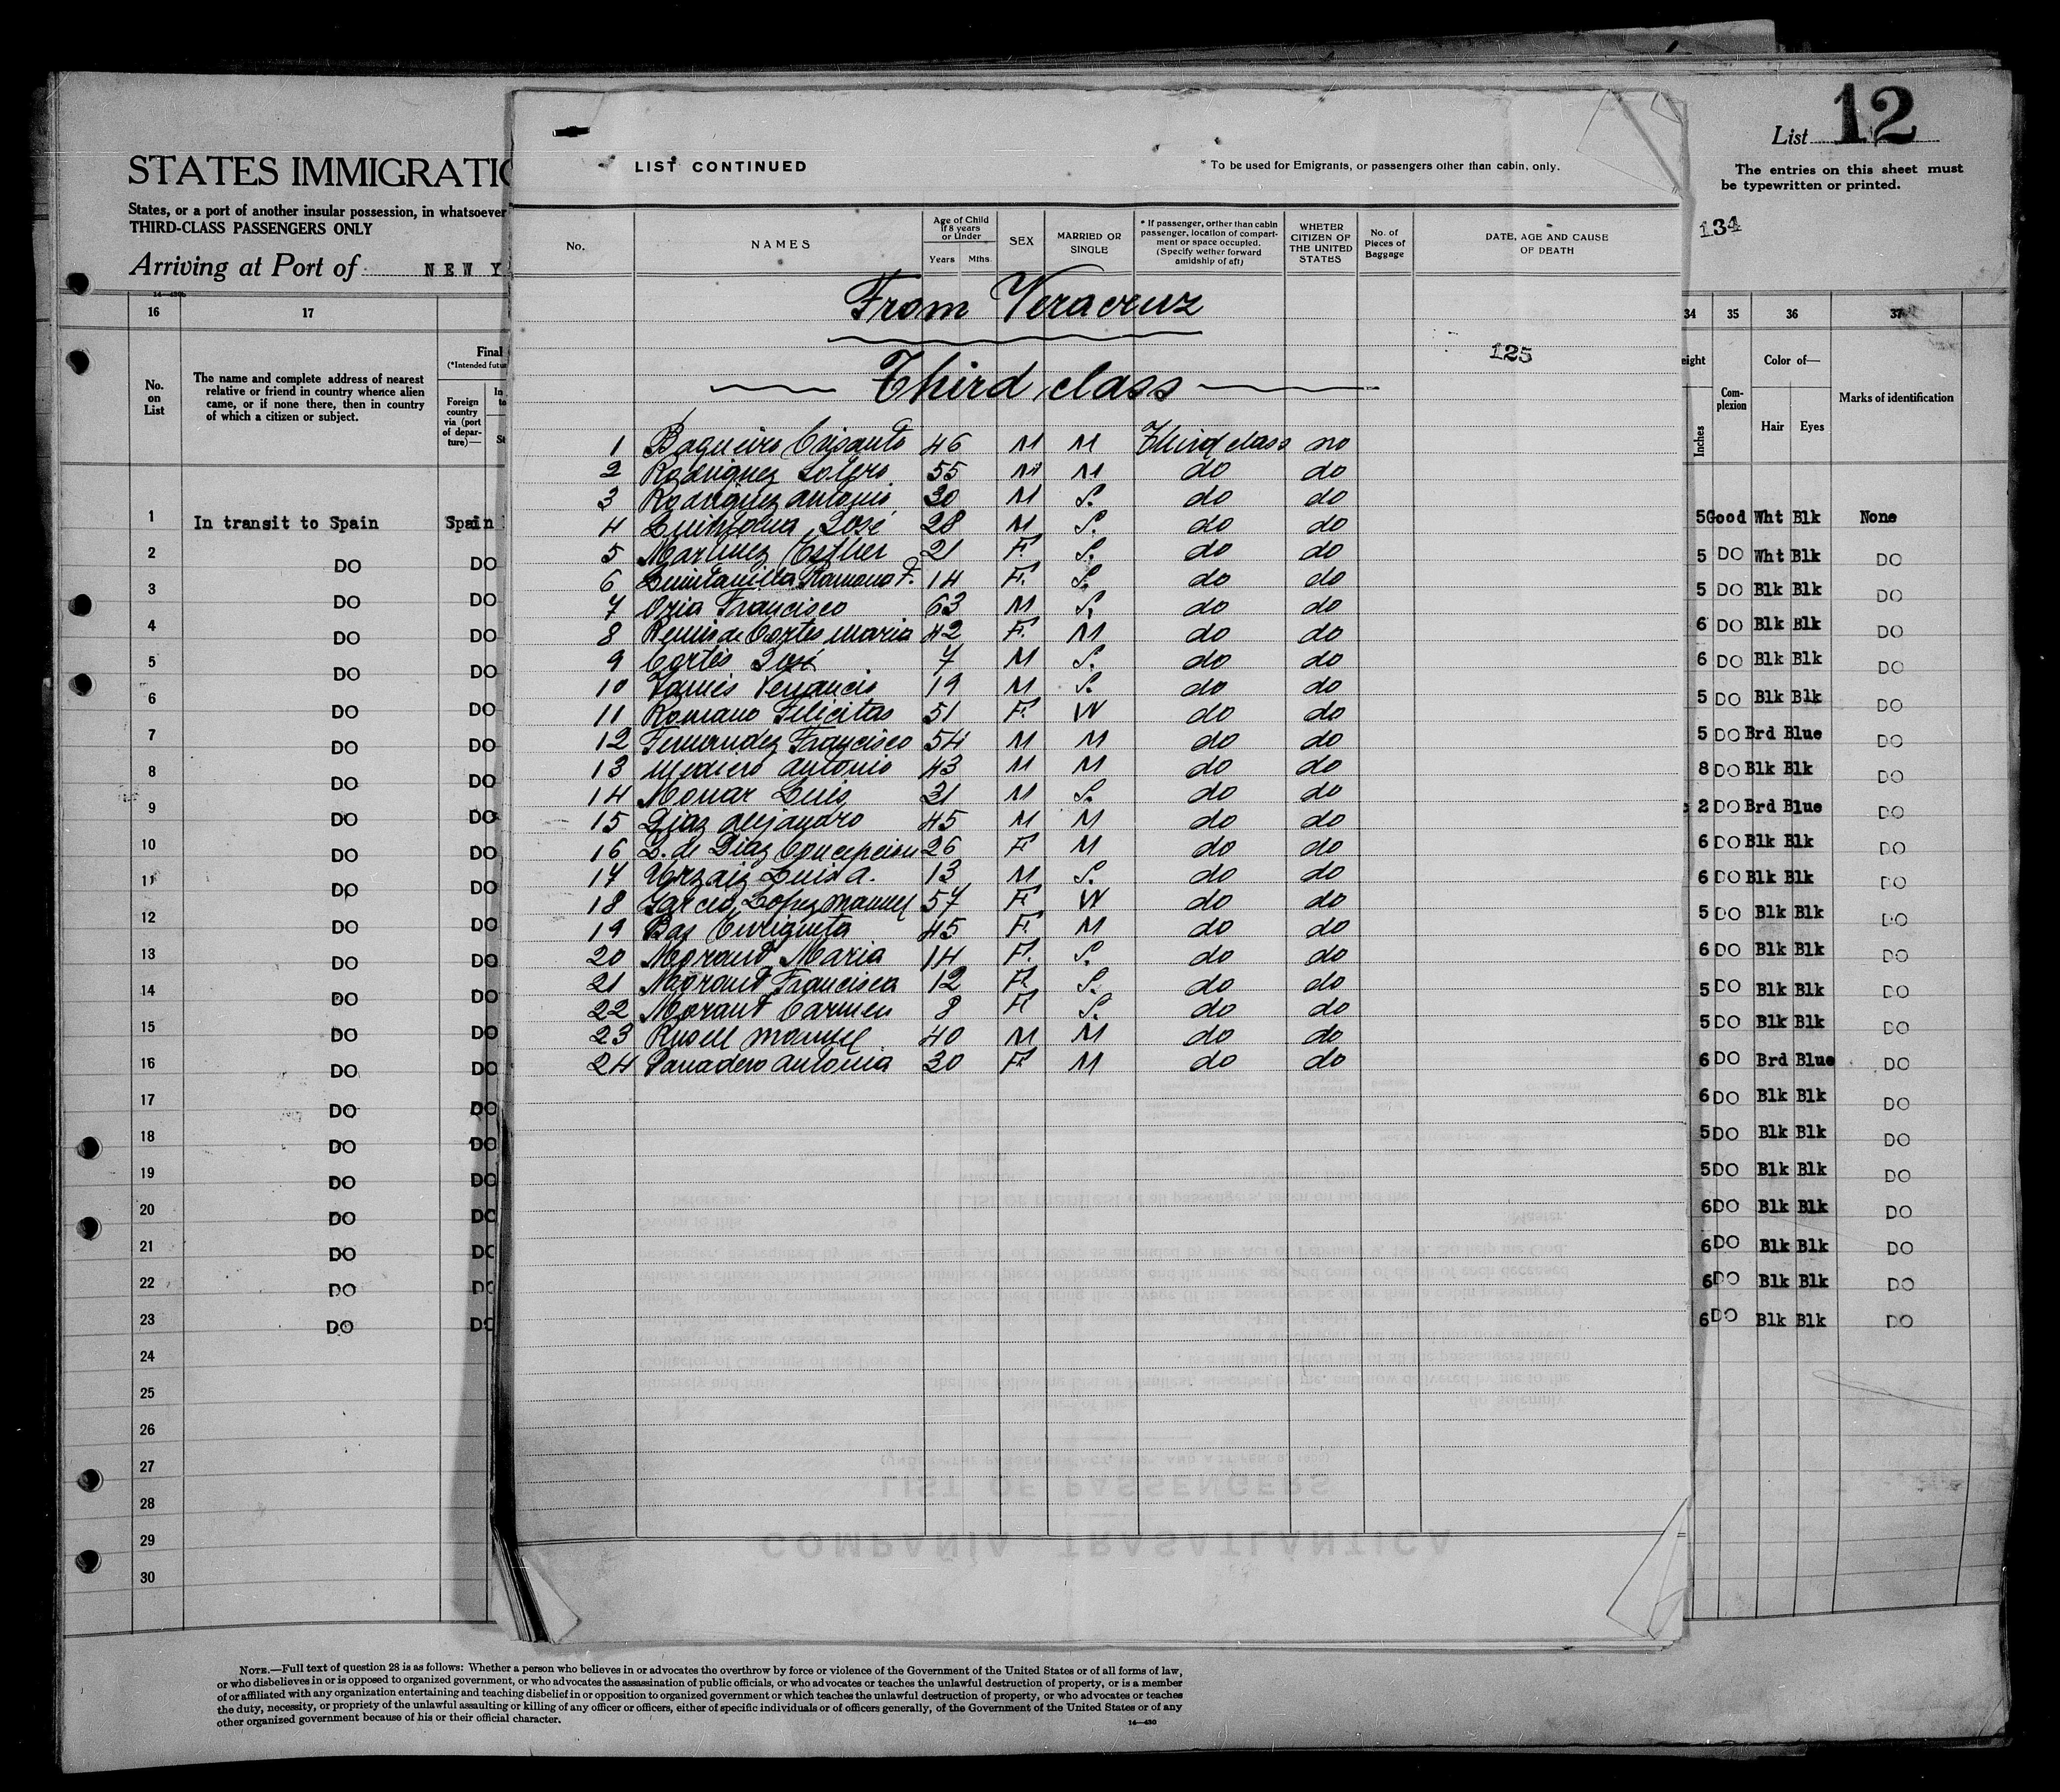 List 12
The entries on this sheet must
be typewritten or printed.
134
STATES IMMIGRATIO
States, or a port of another insular possession, in whatsoever
THIRD-CLASS PASSENGERS ONLY
Arriving at Port of NEW Y
16 17
No. on List
The name and complete address of nearest
relative or friend in country whence alien
came, or if none there, then in country
of which a citizen or subject.
Final
(*Intended futu
Foreign
country
via (port
of depar-
ture)—
1 In transit to Spain Spain
2 DO DO
3 DO DO
4 DO DO
5 DO DO
6 DO DO
7 DO DO
8 DO DO
9 DO DO
10 DO DO
11 DO DO
12 DO DO
13 DO DO
14 DO DO
15 DO DO
16 DO DO
17 DO DO
18 DO DO
19 DO DO
20 DO DO
21 DO DO
22 DO DO
23 DO DO
24
25
26
27
28
29
30
LIST CONTINUED
* To be used for Emigrants, or passengers other than cabin, only.
No. NAMES
Age of Child
If 8 years
or Under
Years Mths.
SEX
MARRIED OR
SINGLE
* If passenger, orther than cabin
passenger, location of compart-
ment or space occupied.
(Specify wether forward
amidship of aft)
WHETER
CITIZEN OF
THE UNITED
STATES
No. of
Pieces of
Baggage
DATE, AGE AND CAUSE
OF DEATH
From Veracruz
125
Third class
1 Baqueiro Crisanto 46 M M Third class no
2 Rodriguez Sotero 55 M M do do
3 Rodriguez Antonio 30 M S. do do
4 José 28 M S. do do
5 Martinez Esther 21 F. S. do do
6 Quintanilla Ramona F. 14 F. S. do do
7 Oria Francisco 63 M S. do do
8 Remis de Cortes Maria 42 F. M do do
9 Cortés José 7 M S. do do
10 Venancio 19 M S. do do
11 Romano Felicitas 51 F. W do do
12 Fernandez Francisco 54 M M do do
13 Antonio 43 M M do do
14 Luis 31 M S. do do
15 Diaz Alejandro 45 M M do do
16 L. de Diaz Concepcion 26 F M do do
17 Urzaiz Luis A. 13 M S. do do
18 Garcia Lopez Manuel 57 F W do do
19 Bas Enriqueta 45 F. M do do
20 Morant Maria 14 F. S. do do
21 Morant Francisca 12 F. S. do do
22 Morant Carmen 8 F. S. do do
23 Rusell Manuel 40 M M do do
24 Panadero Antonia 30 F. M do do
34 35 36 37
eight
Inches
Com-
plexion
Color of—
Hair Eyes
Marks of identification
5 Good Wht Blk None
5 DO Wht Blk DO
5 DO Blk Blk DO
6 DO Blk Blk DO
6 DO Blk Blk DO
5 DO Blk Blk DO
5 DO Brd Blue DO
8 DO Blk Blk DO
2 DO Brd Blue DO
6 DO Blk Blk DO
6 DO Blk Blk DO
5 DO Blk Blk DO
6 DO Blk Blk DO
5 DO Blk Blk DO
5 DO Blk Blk DO
6 DO Brd Blue DO
6 DO Blk Blk DO
5 DO Blk Blk DO
5 DO Blk Blk DO
6 DO Blk Blk DO
6 DO Blk Blk DO
6 DO Blk Blk DO
6 DO Blk Blk DO
LIST OF PASSENGERS
COMPAÑÍA TRASATLÁNTICA
NOTE.—Full text of question 28 is as follows: Whether a person who believes in or advocates the overthrow by force or violence of the Government of the United States or of all forms of law,
or who disbelieves in or is opposed to organized government, or who advocates the assassination of public officials, or who advocates or teaches the unlawful destruction of property, or is a member
of or affiliated with any organization entertaining and teaching disbelief in or opposition to organized government or which teaches the unlawful destruction of property, or who advocates or teaches
the duty, necessity, or propriety of the unlawful assaulting or killing of any officer or officers, either of specific individuals or of officers generally, of the Government of the United States or of any
other organized government because of his or their official character.
14—430